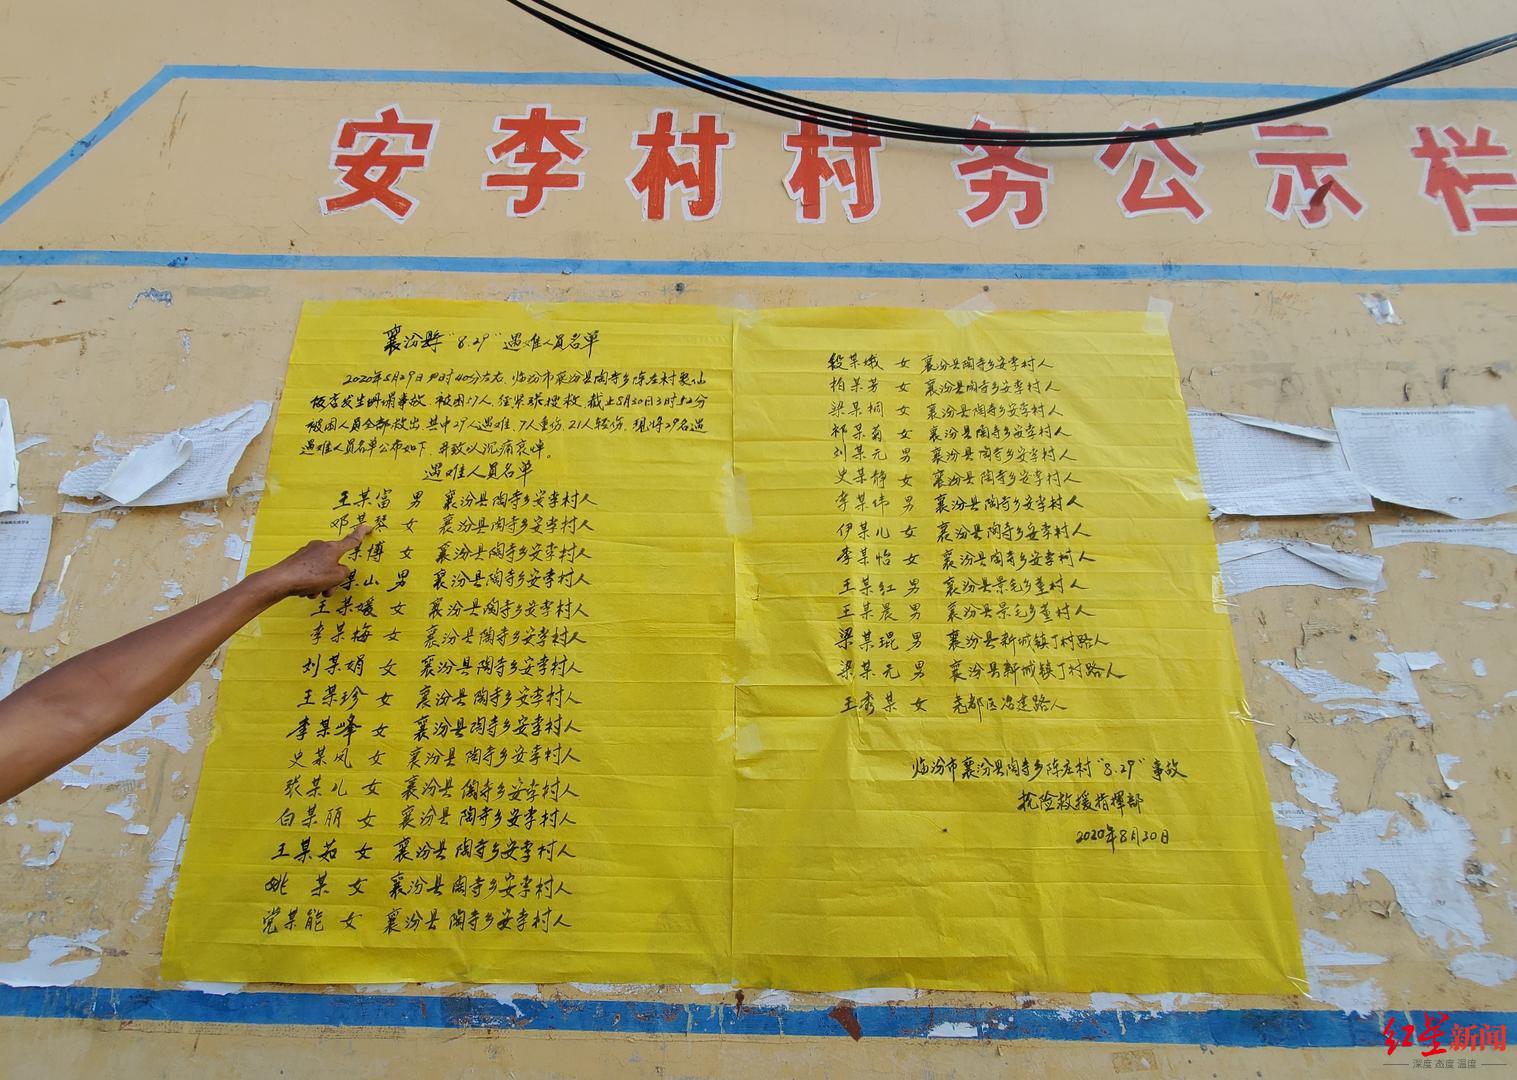 安李村村务公示栏
襄汾县“8.29”遇难人员名单
2020年8月29日9时40分左右，临汾市襄汾县陶寺乡陈庄村聚仙
饭店发生坍塌事故，被困57人，经紧张搜救，截止8月30日3时52分
被困人员全部救出，其中29人遇难，7人重伤，21人轻伤，现将29名遇
遇难人员名单公布如下，并致以沉痛哀悼。
遇难人员名单
王某富 男 襄汾县陶寺乡安李村人
邓某琴 女 襄汾县陶寺乡安李村人
某博 女 襄汾县陶寺乡安李村人
某山 男 襄汾县陶寺乡安李村人
王某媛 女 襄汾县陶寺乡安李村人
李某梅 女 襄汾县陶寺乡安李村人
刘某娟 女 襄汾县陶寺乡安李村人
王某珍 女 襄汾县陶寺乡安李村人
李某峰 女 襄汾县陶寺乡安李村人
史某凤 女 襄汾县陶寺乡安李村人
张某儿 女 襄汾县陶寺乡安李村人
白某丽 女 襄汾县陶寺乡安李村人
王某茹 女 襄汾县陶寺乡安李村人
姚某 女 襄汾县陶寺乡安李村人
党某能 女 襄汾县陶寺乡安李村人
段某娥 女 襄汾县陶寺乡安李村人
柏某芳 女 襄汾县陶寺乡安李村人
梁某桐 女 襄汾县陶寺乡安李村人
祁某菊 女 襄汾县陶寺乡安李村人
刘某元 男 襄汾县陶寺乡安李村人
史某静 女 襄汾县陶寺乡安李村人
李某伟 男 襄汾县陶寺乡安李村人
伊某儿 女 襄汾县陶寺乡安李村人
李某怡 女 襄汾县陶寺乡安李村人
王某红 男 襄汾县景毛乡董村人
王某晨 男 襄汾县景毛乡董村人
梁某琨 男 襄汾县新城镇丁村路人
梁某元 男 襄汾县新城镇丁村路人
王秀某 女 尧都区冶建路人
临汾市襄汾县陶寺乡陈庄村“8.29”事故
抢险救援指挥部
2020年8月30日
红星新闻
深度 态度 温度